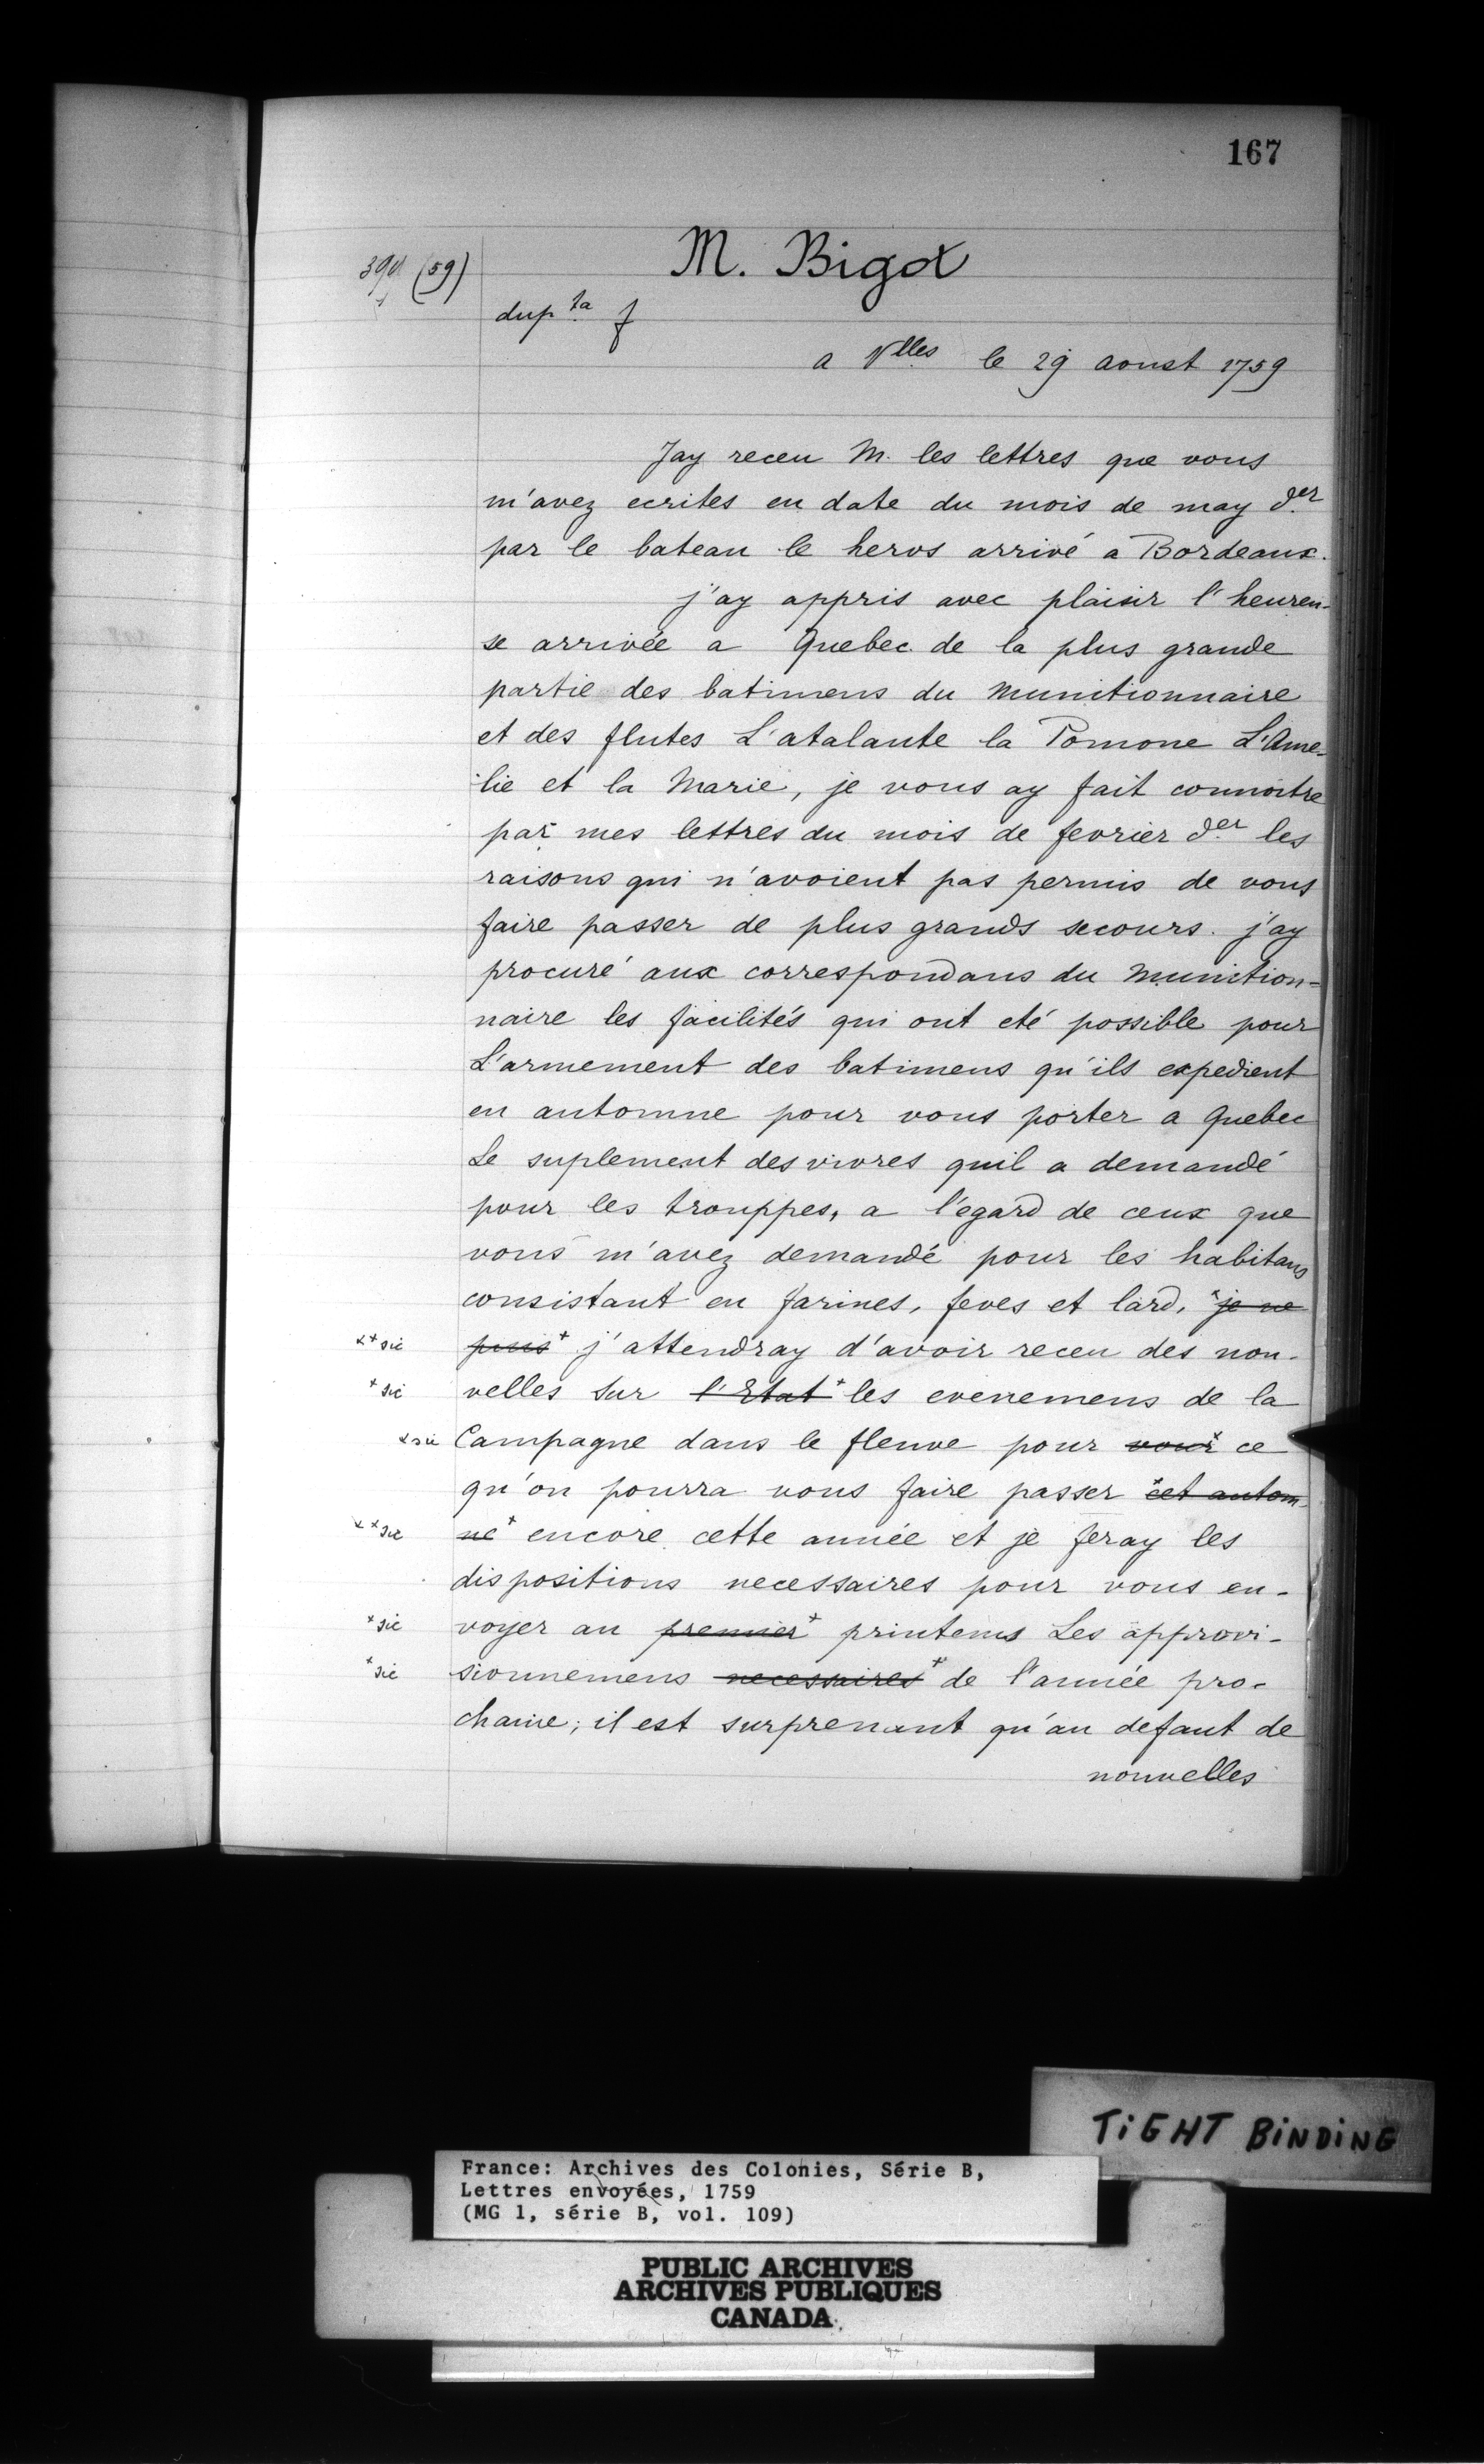 167
M. Bigot
(59)
dup ta f
a Vlles le 29 aoust 1759
Jay receu M. les lettres que vous
m'avez ecrites en date du mois de may der
par le bateau le heros arrivé a Bordeaux.
j'ay appris avec plaisir l'heureu-
se arrivée a Quebec de la plus grande
partie des batimens du Munitionnaire
et des flutes L'atalante la Pomone L'Ame-
lie et la Marie, je vous ay fait connoitre
par mes lettres du mois de fevrier der les
raisons qui n'avoient pas permis de vous
faire passer de plus grands secours. j'ay
procuré aux correspondans du Munition=
naire les facilités qui ont eté possible pour
L'armement des batimens qu'ils expedient
en automne pour vous porter a Quebec
Le suplement des vivres quil a demandé
pour les trouppes, a l'egard de ceux que
vous m'avez demandé pour les habitans
consistant en farines, feves et lard, +je ne
x+ sic puis+ j'attendray d'avoir receu des nou-
+sic velles sur l'Etat+ les evenemens de la
x sic Campagne dans le fleuve pour vour+ ce
qu'on pourra vous faire passer +cet autom-
x+sic ne+ encore cette année et je feray les
dispositions necessaires pour vous en-
+sic voyer au premier+ printems Les approvi-
+sic sionnemens necessaires+ de l'année pro-
chaine; il est surprenant qu'au defaut de
nouvelles
TIGHT BINDING
France: Archives des Colonies, Série B,
Lettres envoyées, 1759
(MG 1, série B, vol. 109)
PUBLIC ARCHIVES
ARCHIVES PUBLIQUES
CANADA